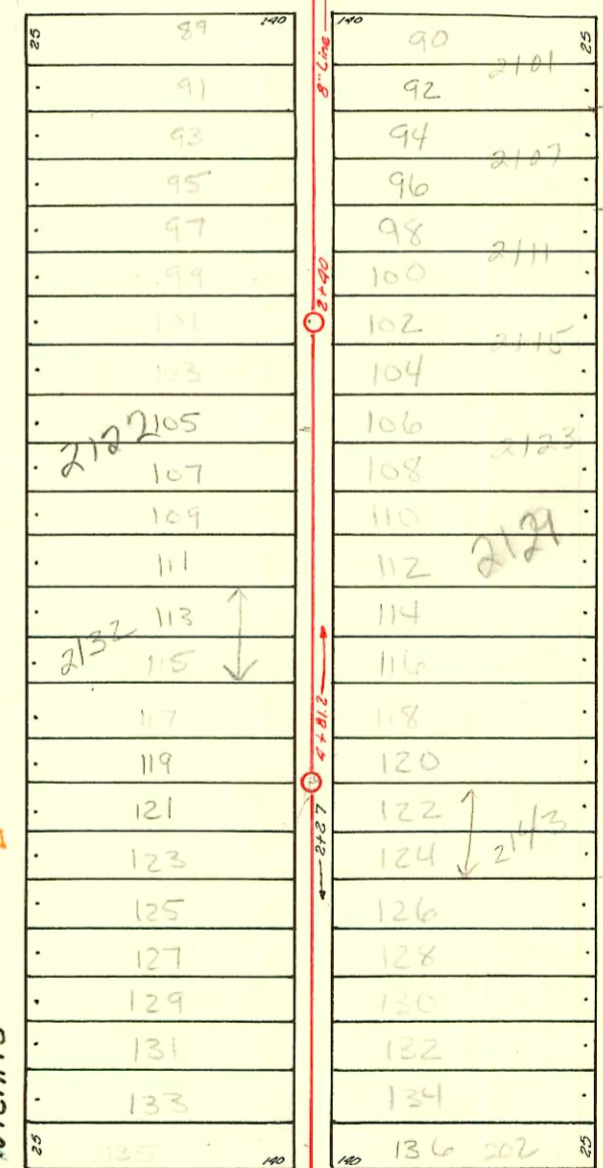 25 89 140
91
93
95
97
99
101
103
2122 105
107
109
111
113
2132 115
117
119
121
123
125
127
129
131
133
25 135 140
8" Line
2+40
4+81.2
2+27
140 90 25
2101
92
94
2107
96
98
2111
100
102
2115
104
106
2123
108
110
2129
112
114
116
118
120
122
2143
124
126
128
130
132
134
140 136 202 25